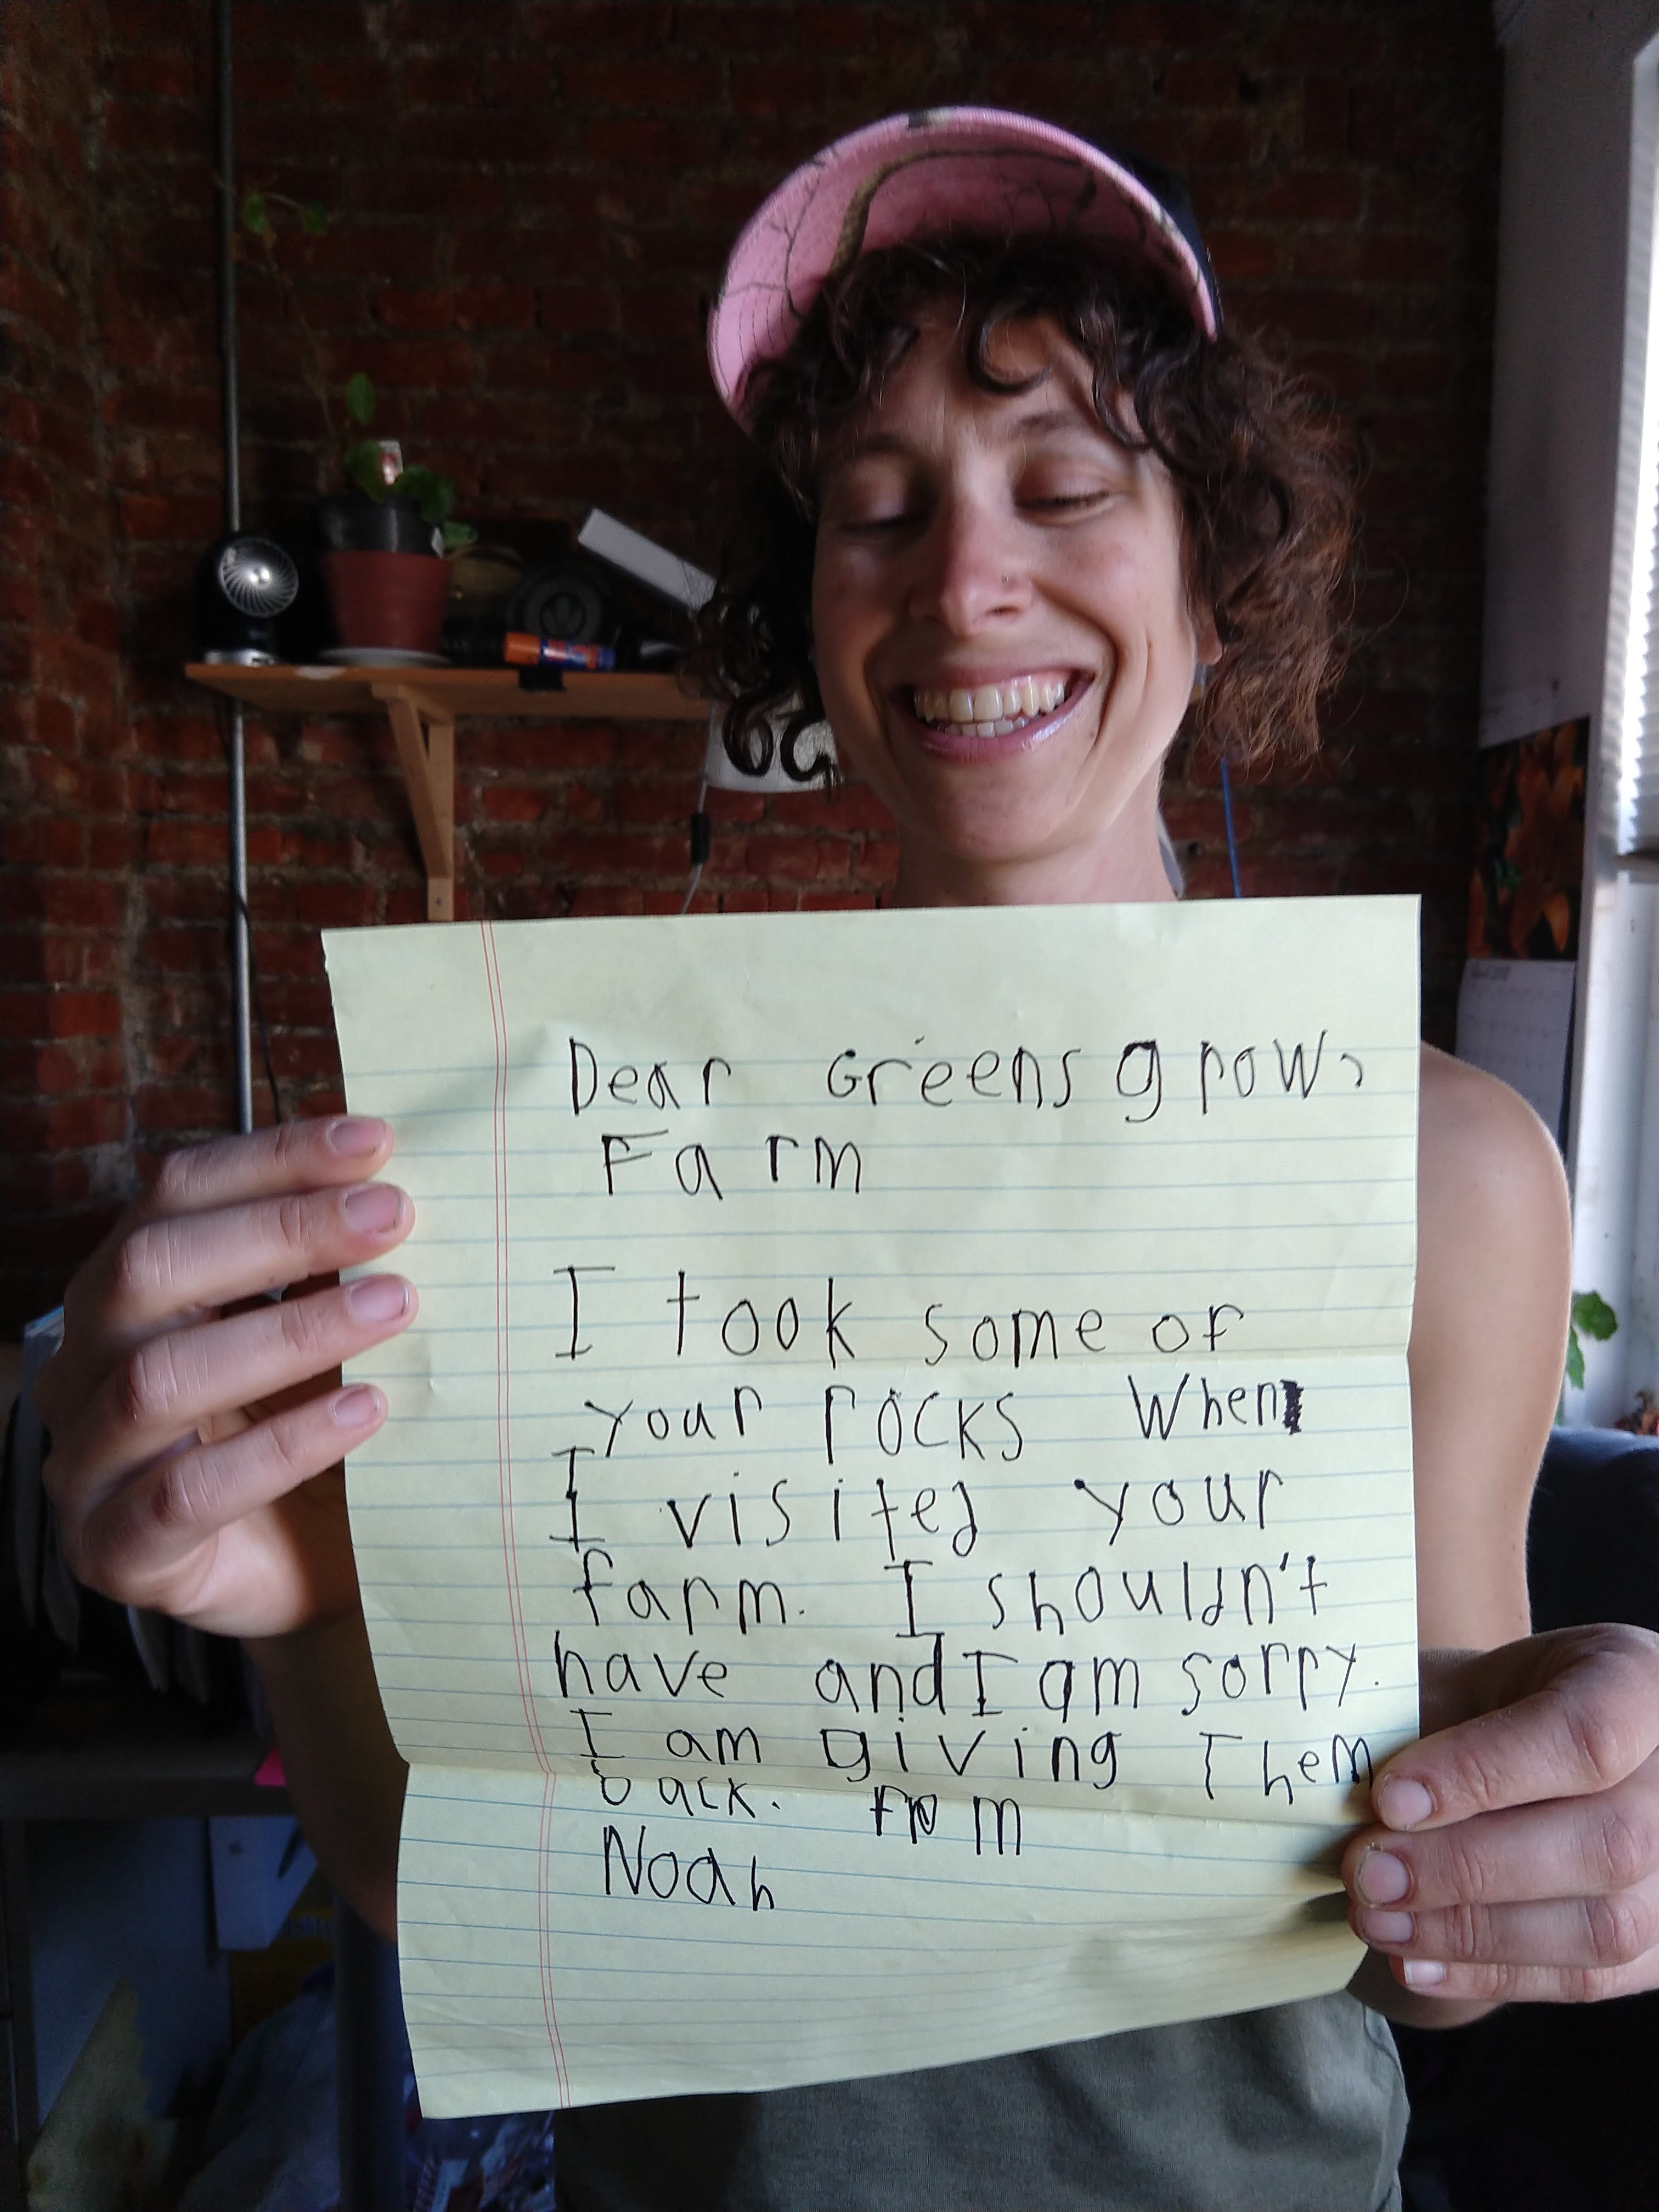 Dear Greensgrow,
Farm
I took some of
your rocks When
I visited your
farm. I shouldn't
have and I am sorry.
I am giving Them
back. from
Noah